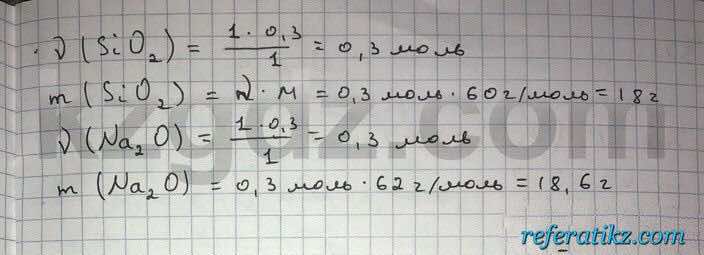 ν(SiO₂) = 1·0,3/1 = 0,3 моль
m(SiO₂) = ν·M = 0,3 моль·60 г/моль = 18 г
ν(Na₂O) = 1·0,3/1 = 0,3 моль
m(Na₂O) = 0,3 моль·62 г/моль = 18,6 г
kzgdz.com
referatikz.com